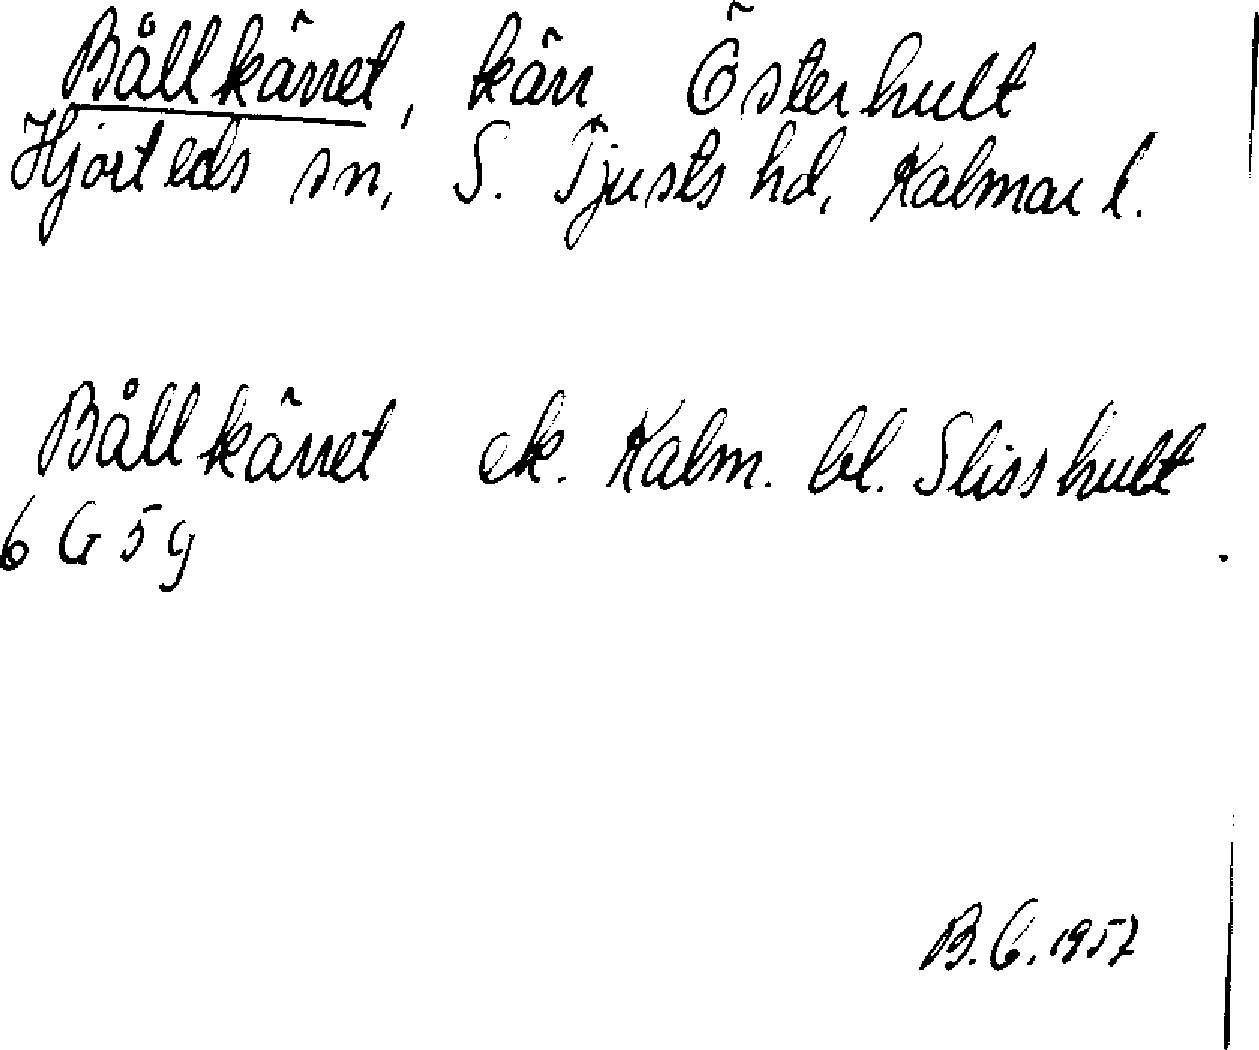 Bållkärret, kärr Österhult
Hjorteds sn, S. Tjusts hd, Kalmar l.
Bållkärret ek. Kalm. bl. Slisshult
6 G 5 g
B.G. 1957